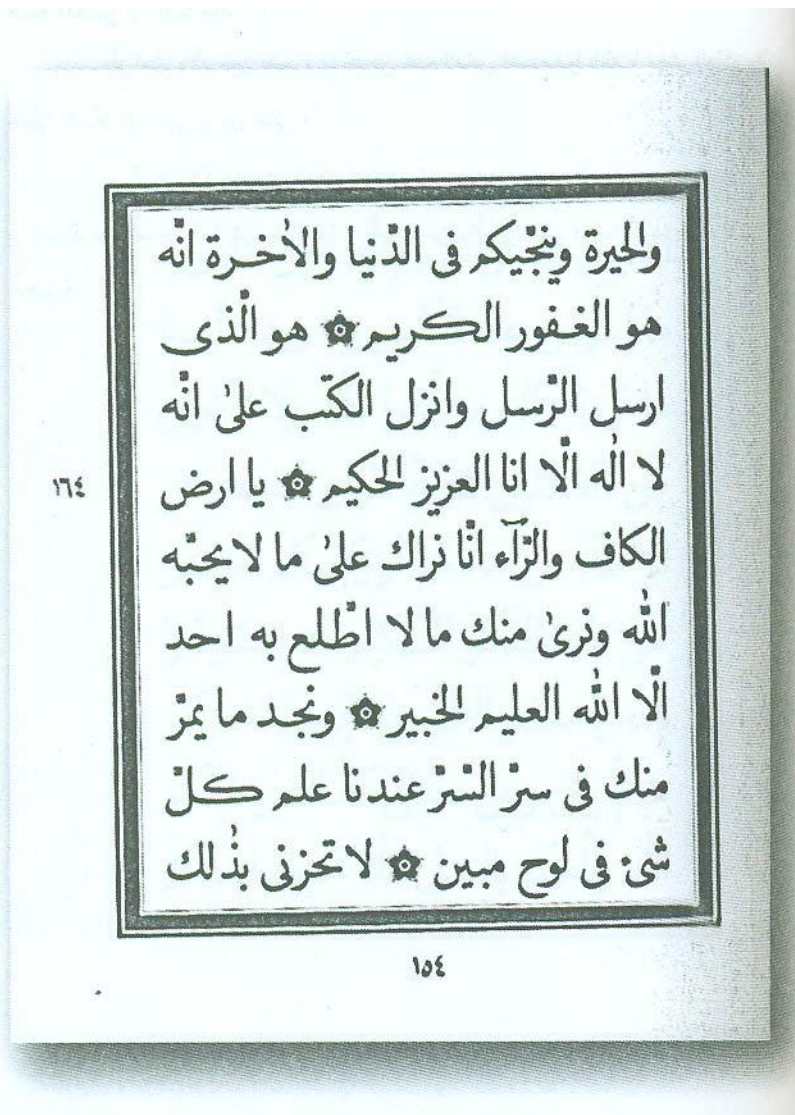 والحيرة وينجّيكم فى الدّنيا والاٰخـرة انّه
هو الغـفور الكريم ۞ هو الّذى
ارسل الرّسل وانزل الكتٰب علىٰ انّه
لا الٰه الّا انا العزيز الحكيم ۞ يا ارض
١٦٤
الكاف والرّآء انّا نراك علىٰ ما لا يحبّه
اللّٰه ونرىٰ منك ما لا اطّلع به احد
الّا اللّٰه العليم الخبير ۞ ونجـد ما يمرّ
منك فى سرّ السّرّ عندنا علم كلّ
شىء فى لوح مبين ۞ لا تحزنى بذٰلك
١٥٤